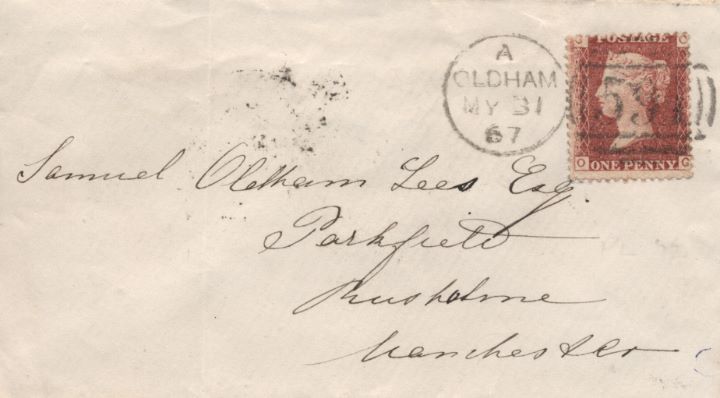 A
OLDHAM
MY 31
67
G O
POSTAGE
591
O G
ONE PENNY
Samuel Oldham Lees Esq.
Parkfield
Rusholme
Manchester